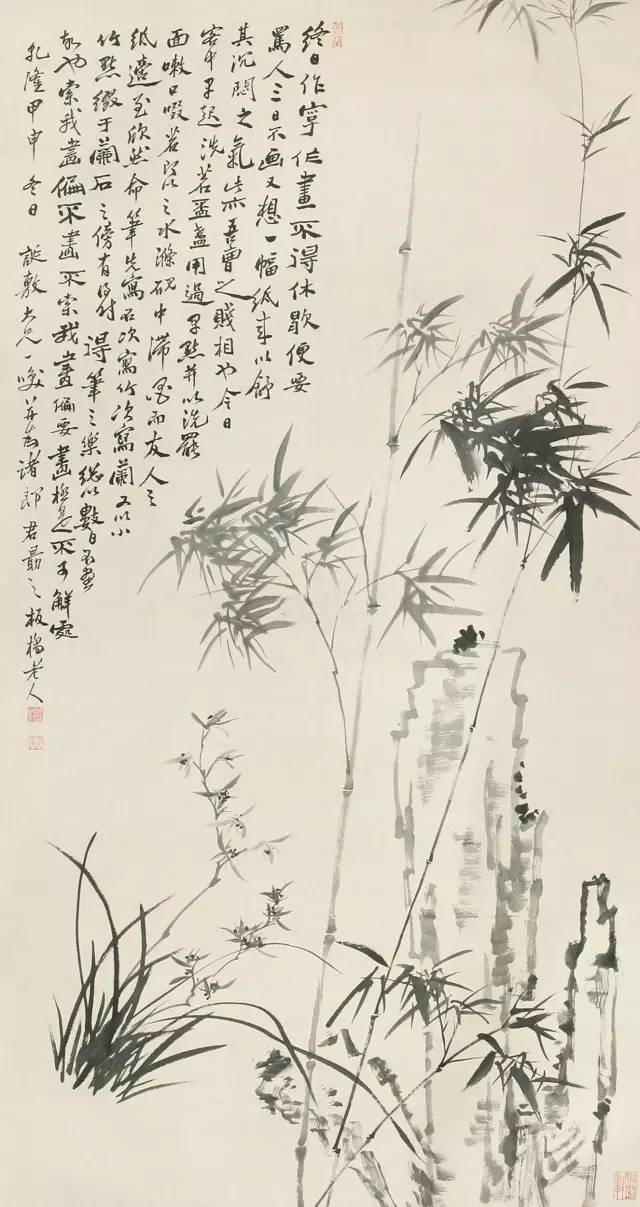 終日作字作畫不得休歇便要
罵人三日不画又想一幅紙來以舒
其沉悶之氣此亦吾曹之賤相也今日
客中早起洗若盃盞用過早點并以洗罷
面嗽口啜茗之水滌硯中滯墨而友人之
紙適至欣然命筆先寫石次寫竹次寫蘭又以小
竹點綴于蘭石之傍有得時得筆之樂總以數日不畫
故也索我畫偏不畫不索我畫偏要畫極是不可解處
乾隆甲申冬日誕敷大兄一噱并為諸郎君勗之板橋老人